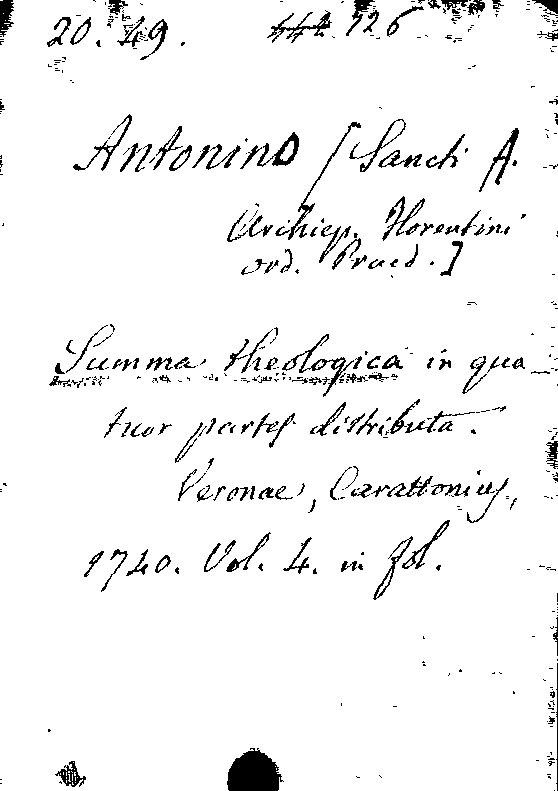 20. 49. 126
Antonino [Sancti A.
Archiep. Florentini
ord. Praed.]
Summa theologica in qua
tuor partes distributa.
Veronae, Carattonius,
1740. Vol. 4. in fol.